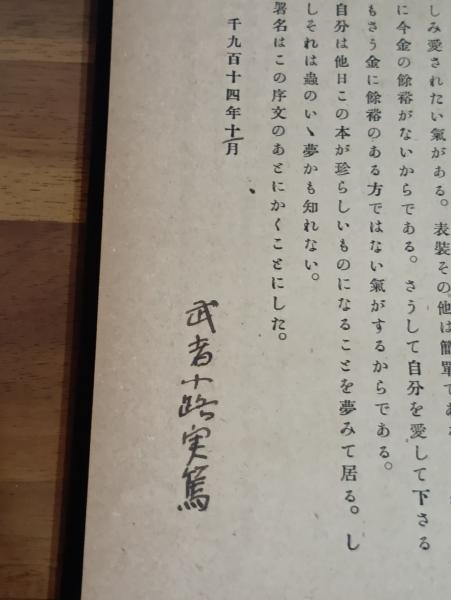 しみ愛されたい氣がある。表裝その他は簡單であ
に今金の餘裕がないからである。さうして自分を愛して下さる
もさう金に餘裕のある方ではない氣がするからである。
自分は他日この本が珍らしいものになることを夢みて居る。し
しそれは蟲のいゝ夢かも知れない。
署名はこの序文のあとにかくことにした。
千九百十四年十一月
武者小路実篤